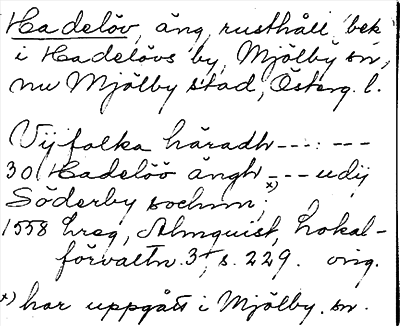 Hadelöv, äng, rusthåll, bek
i Hadelövs by, Mjölby sn,
nu Mjölby stad, Österg. l.
Vijfolka häradh---:---
30 Hadelöö ängh x) --- udij
Söderby sochnn:
1558 Lreg, Almquist, Lokal-
förvaltn. 3+, s. 229. orig.
x) har uppgått i Mjölby. sn.